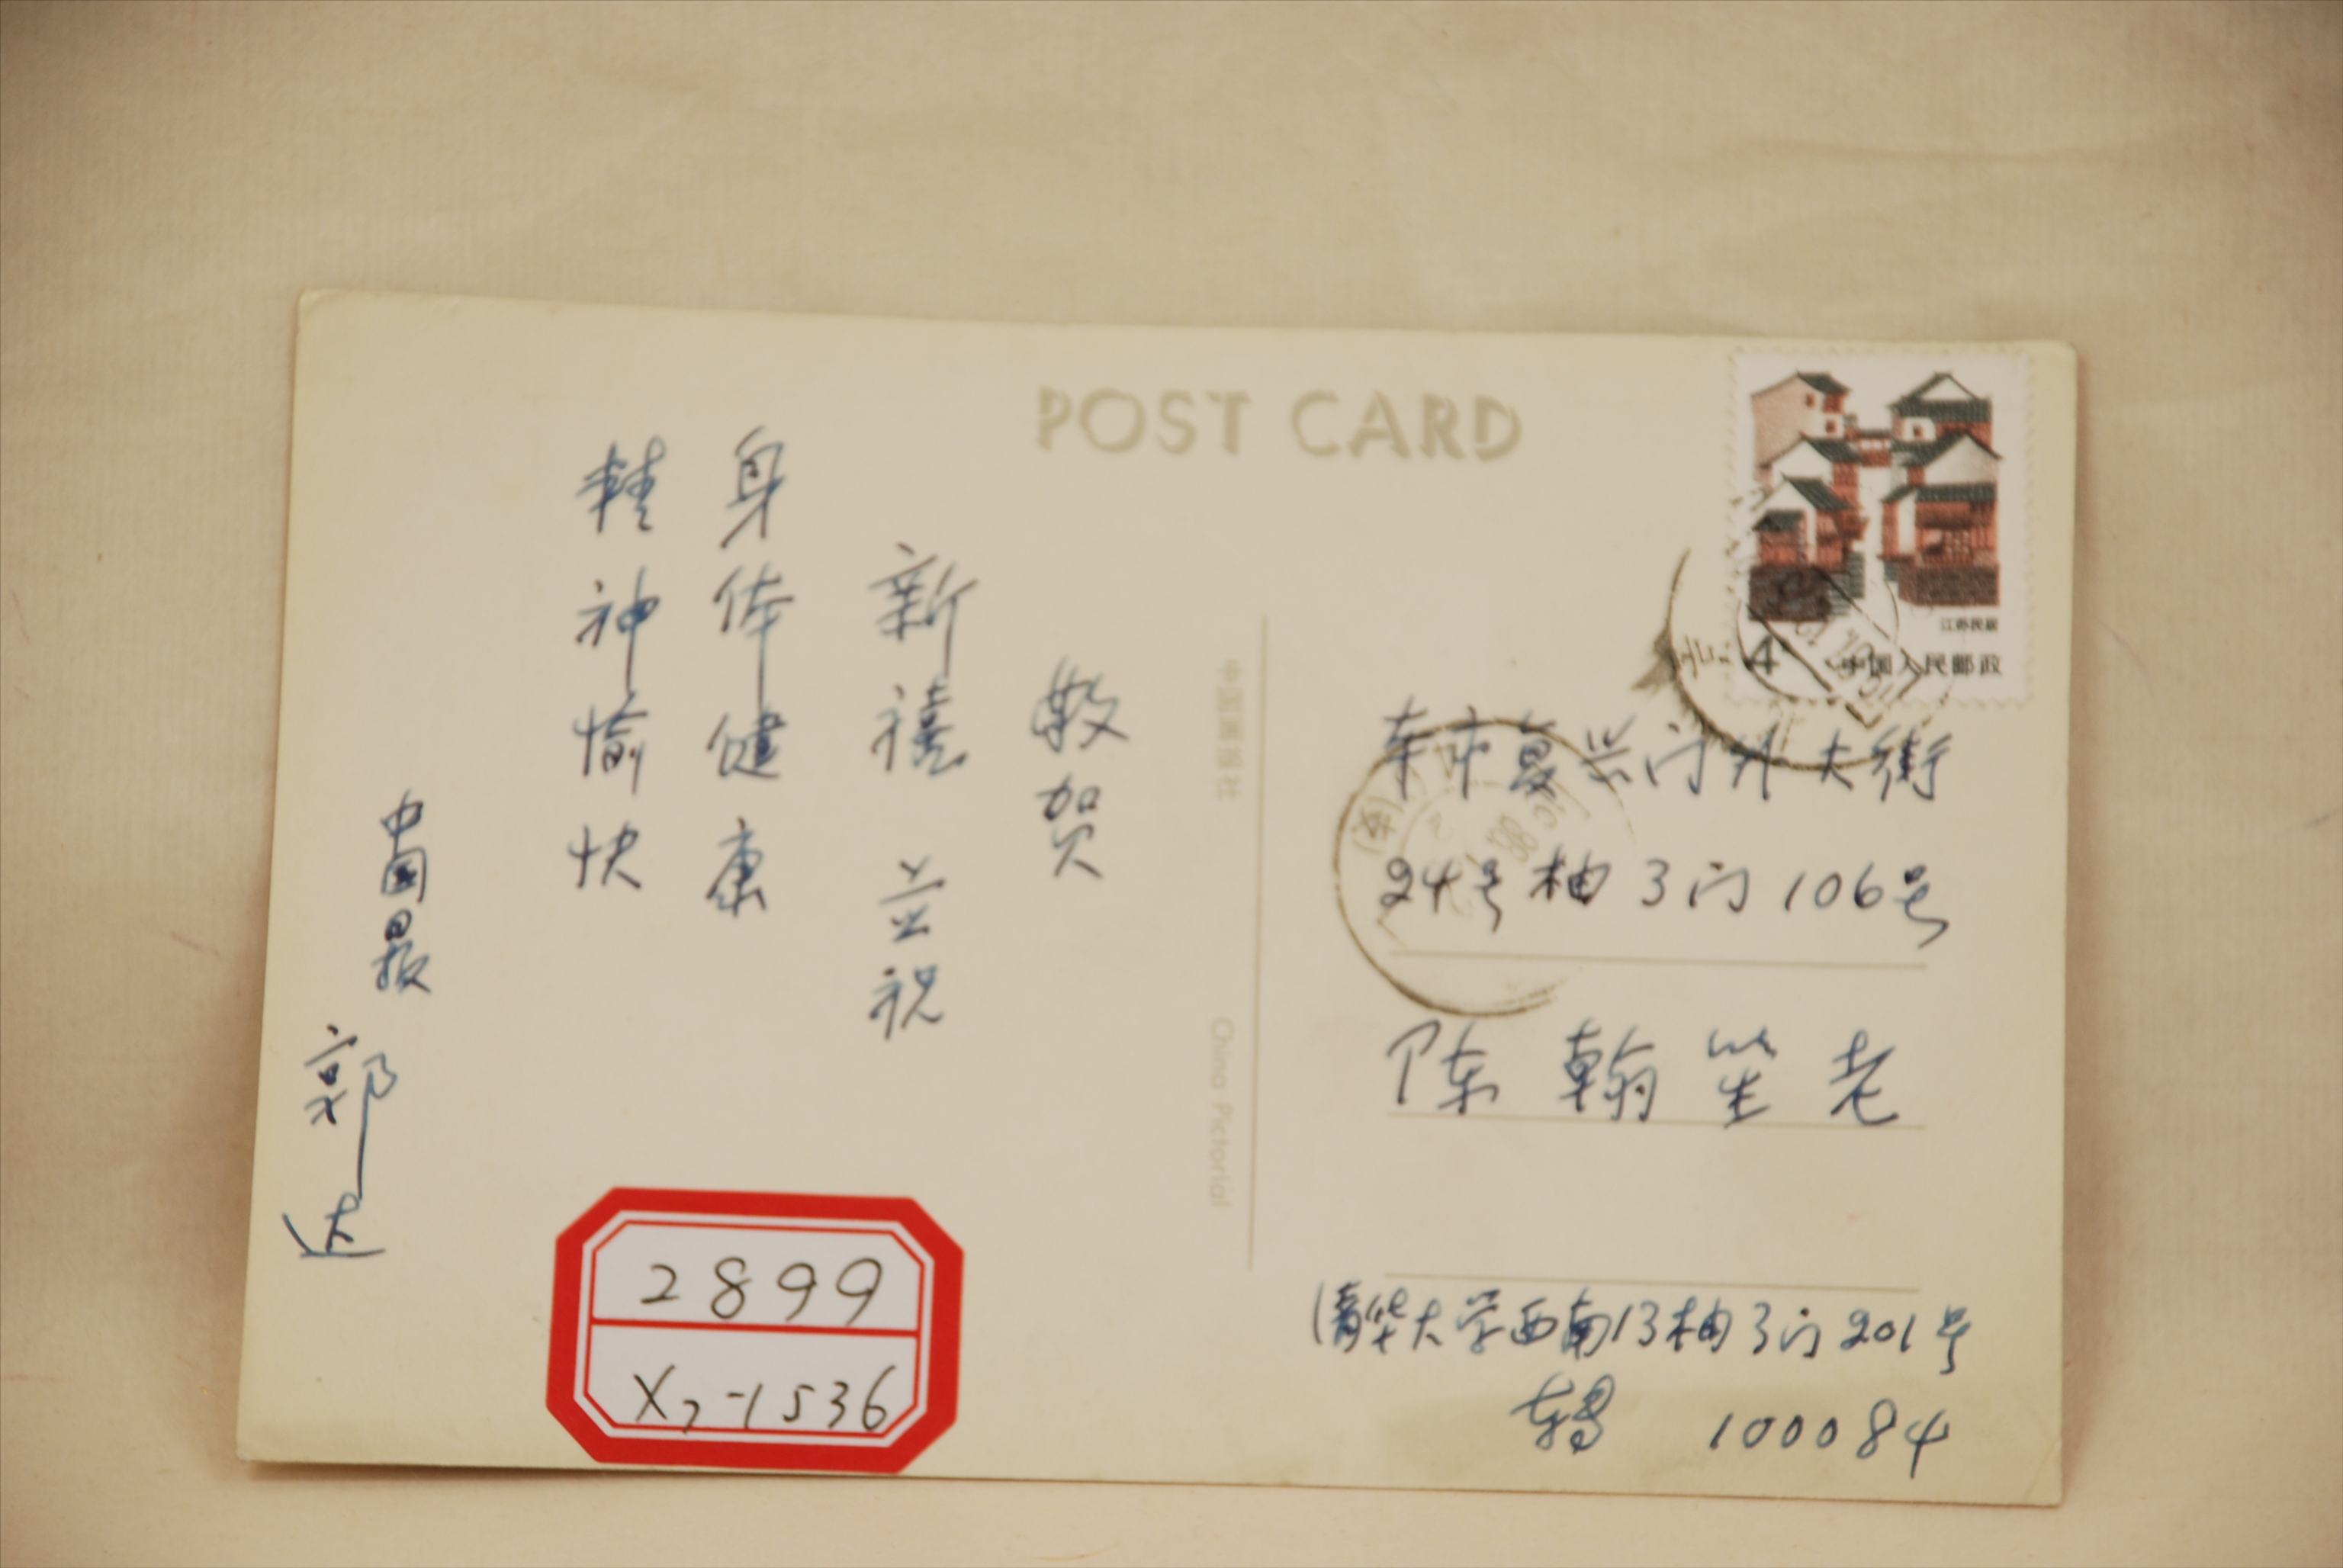 POST CARD
敬贺
新禧 並祝
身体健康
精神愉快
中国日报
郭达
中国画报社
China Pictorial
江苏民居
4
中国人民邮政
本市复兴门外大街
24号楼3门106号
陈翰笙老
清华大学西南13楼3门201号
转 100084
2899
X7-1536